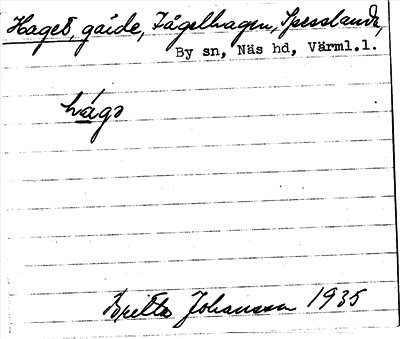 Haget, gårde, Fågelhagen, Spesslanda,
By sn, Näs hd, Värml.l.
hágə
Britta Johansson 1935